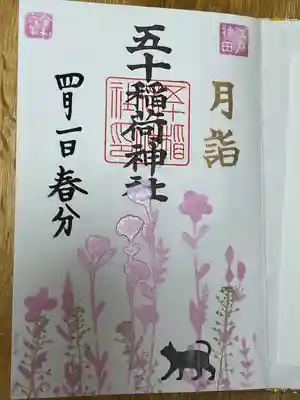 江戸
神田
月詣
五十稲荷神社
四月一日春分